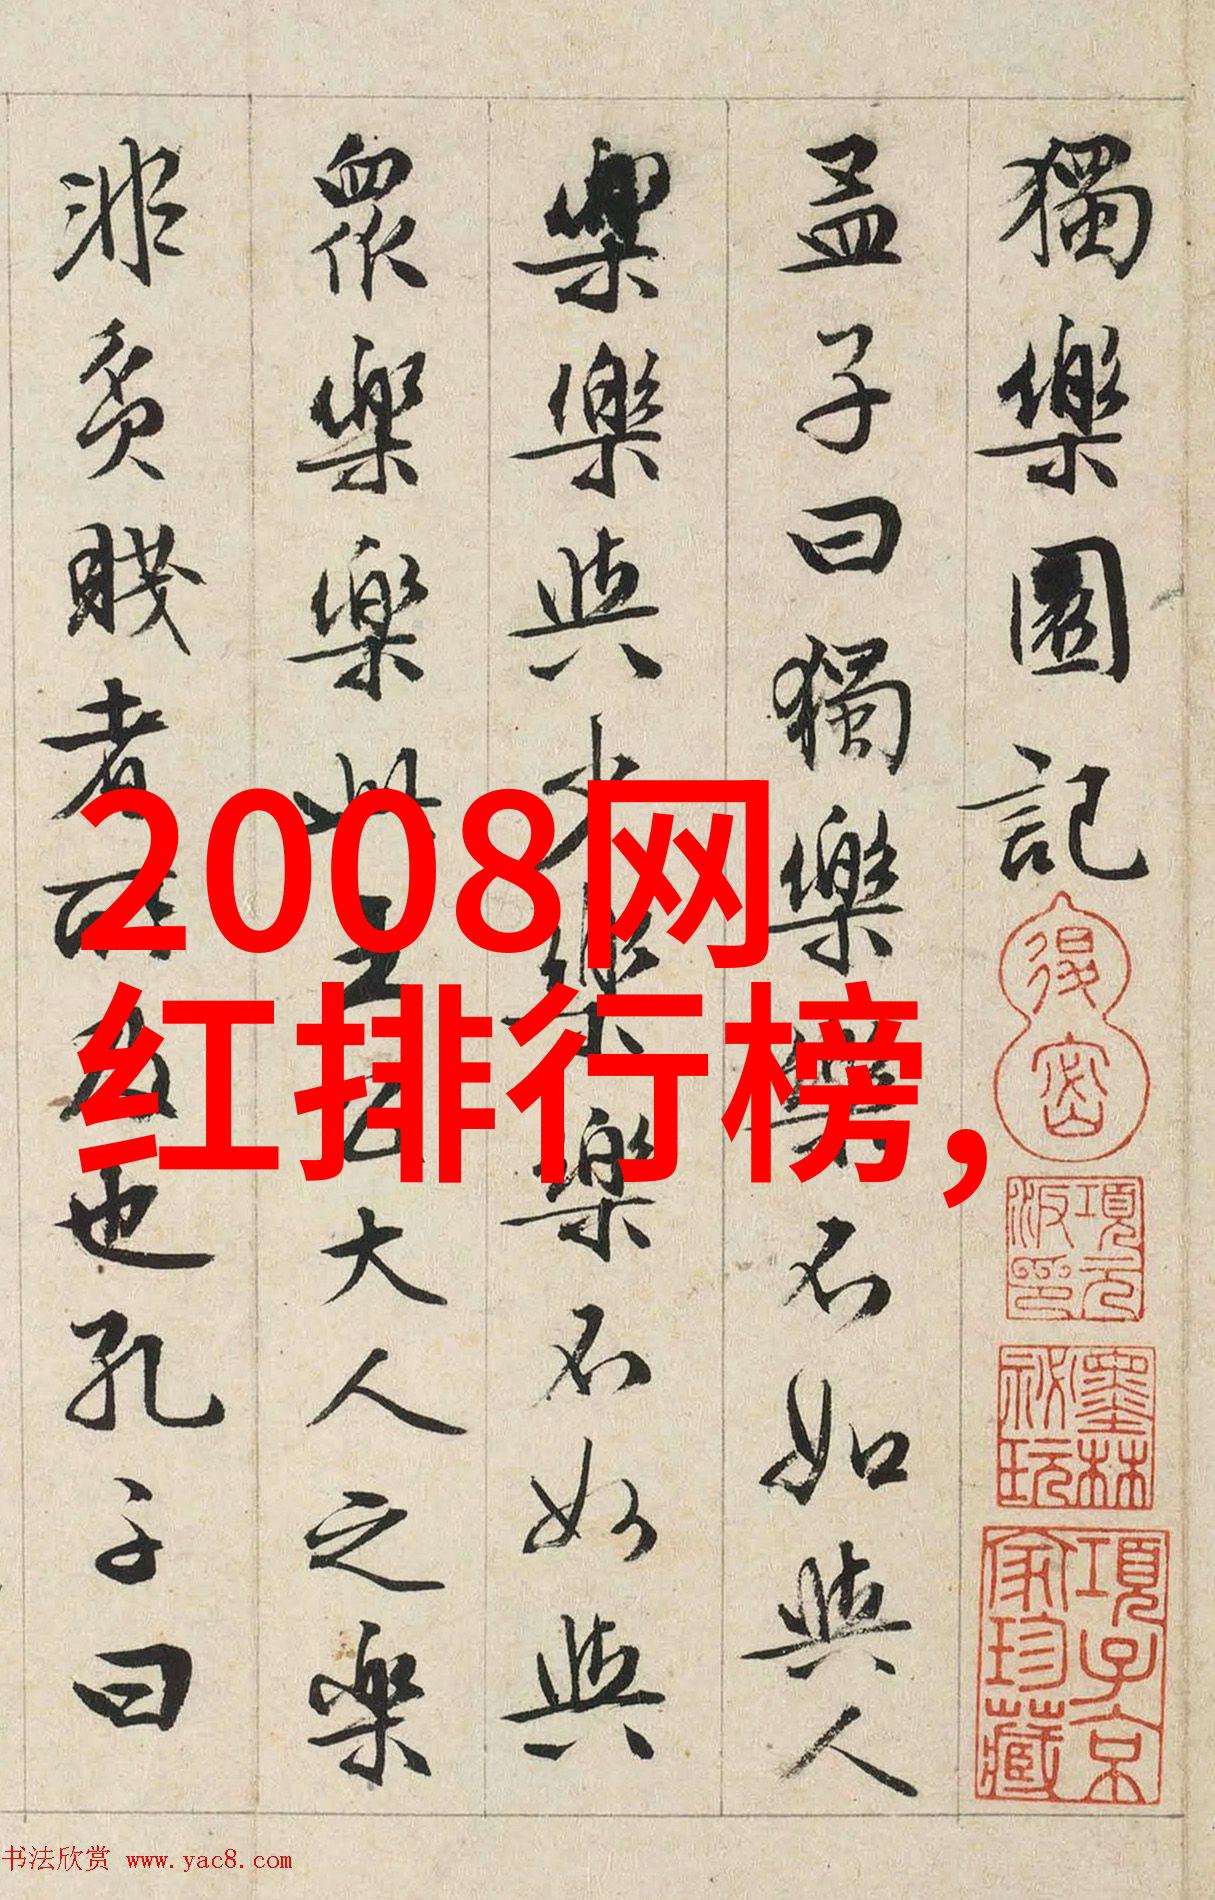 獨樂園記
孟子曰獨樂樂不如與人
樂樂與少樂樂不如與
眾樂樂此王公大人之樂
非貧賤者所及也孔子曰
2008网
红排行榜,
退密
項元汴印
墨林祕玩
項子京家珍藏
书法欣赏 www.yac8.com